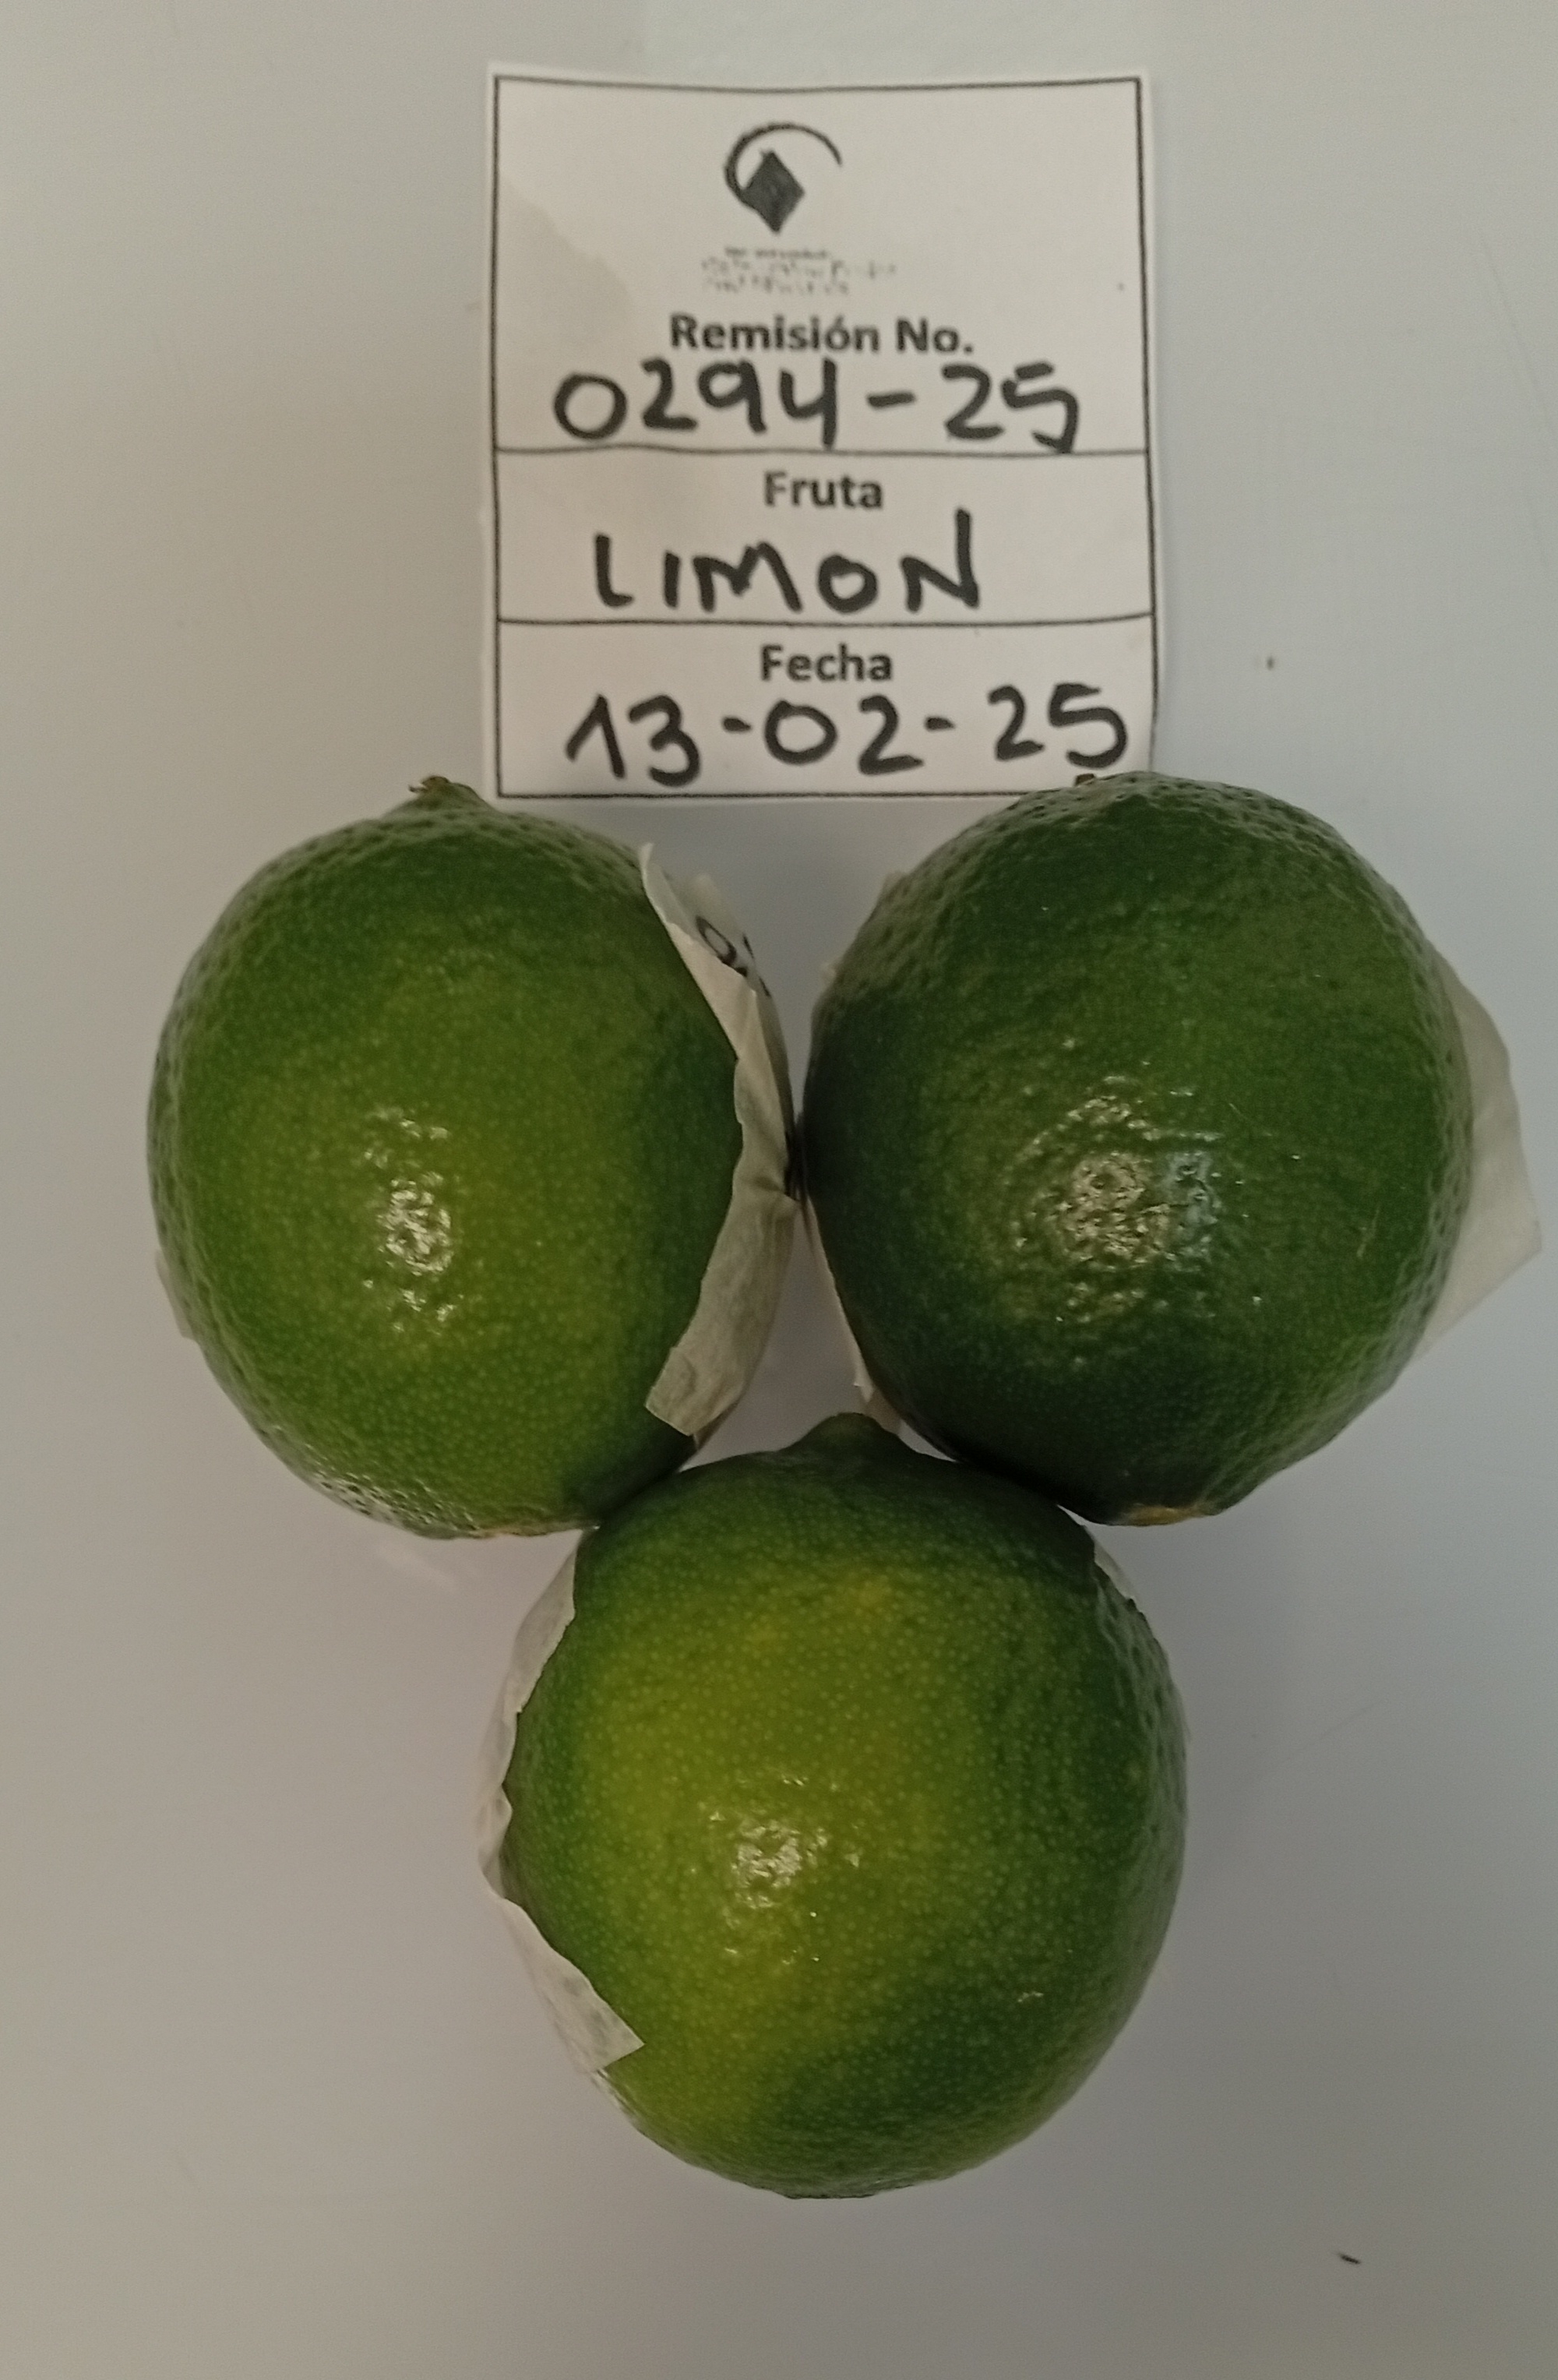 Remisión No.
0294-25
Fruta
LIMON
Fecha
13-02-25